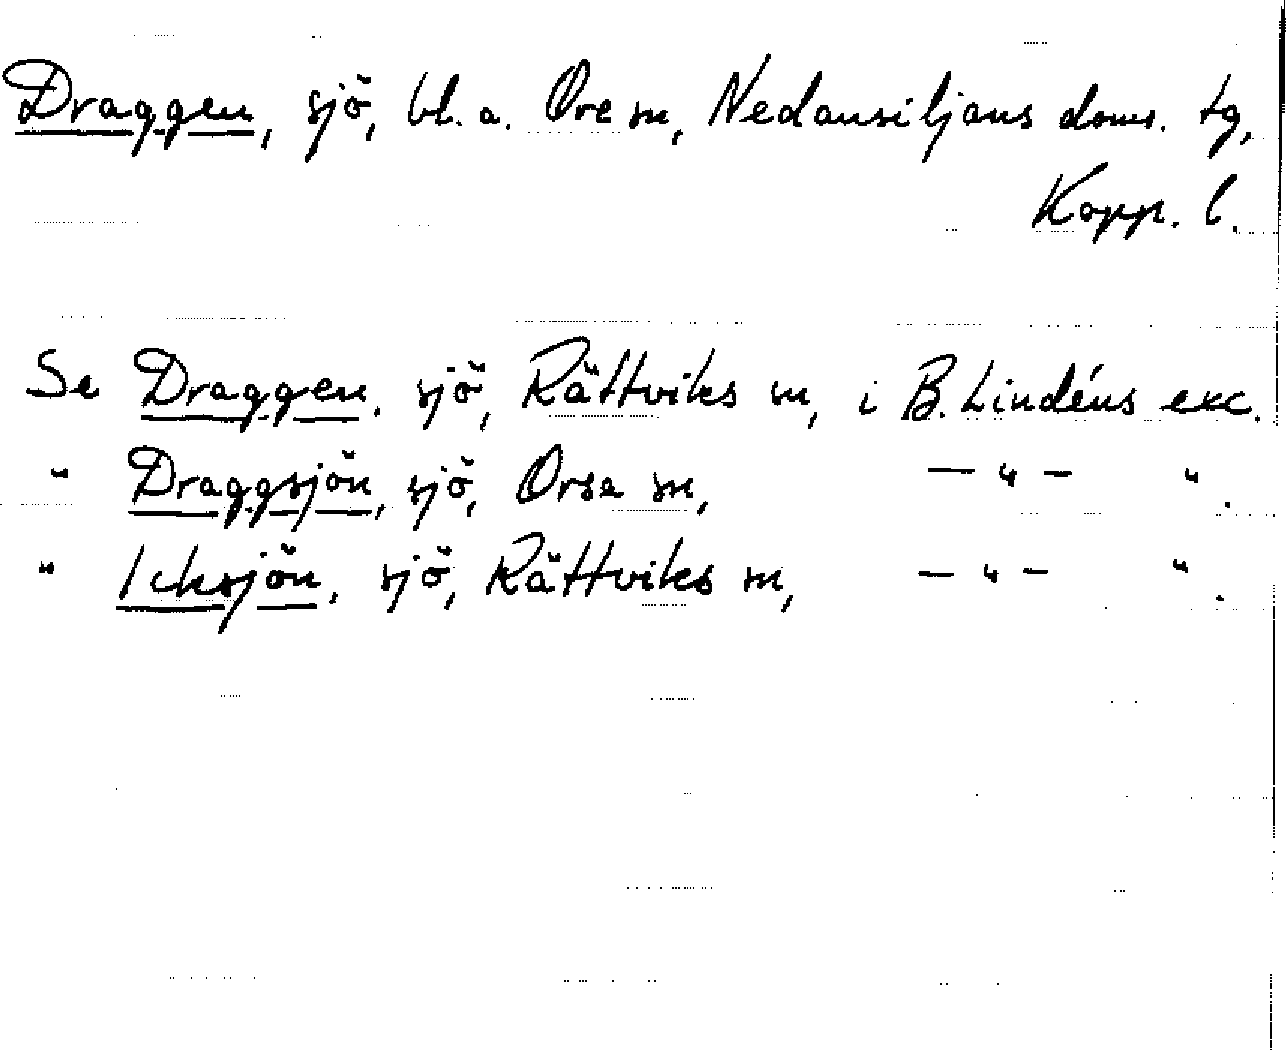 Draggen, sjö, bl. a. Ore sn, Nedansiljans doms. tg,
Kopp. l.
Se Draggen, sjö, Rättviks sn, i B. Lindéns exc.
" Draggsjön, sjö, Orsa sn, — " — " .
" Icksjön, sjö, Rättviks sn, — " — " .